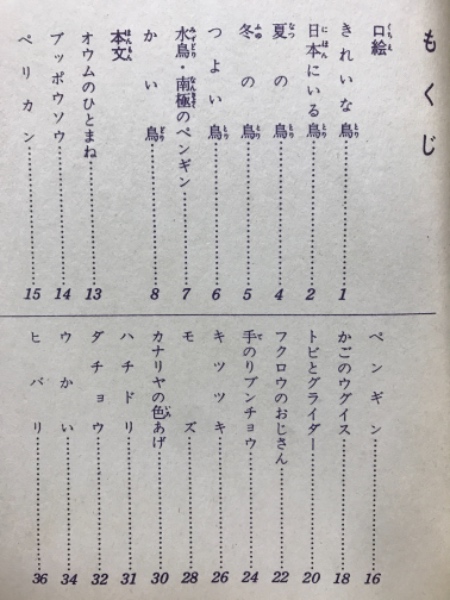 もくじ
口絵
きれいな鳥……1
日本にいる鳥……2
夏の鳥……4
冬の鳥……5
つよい鳥……6
水鳥・南極のペンギン……7
かい鳥……8
本文
オウムのひとまね……13
ブッポウソウ……14
ペリカン……15
ペンギン……16
かごのウグイス……18
トビとグライダー……20
フクロウのおじさん……22
手のりブンチョウ……24
キツツキ……26
モズ……28
カナリヤの色あげ……30
ハチドリ……31
ダチョウ……32
ウかい……34
ヒバリ……36